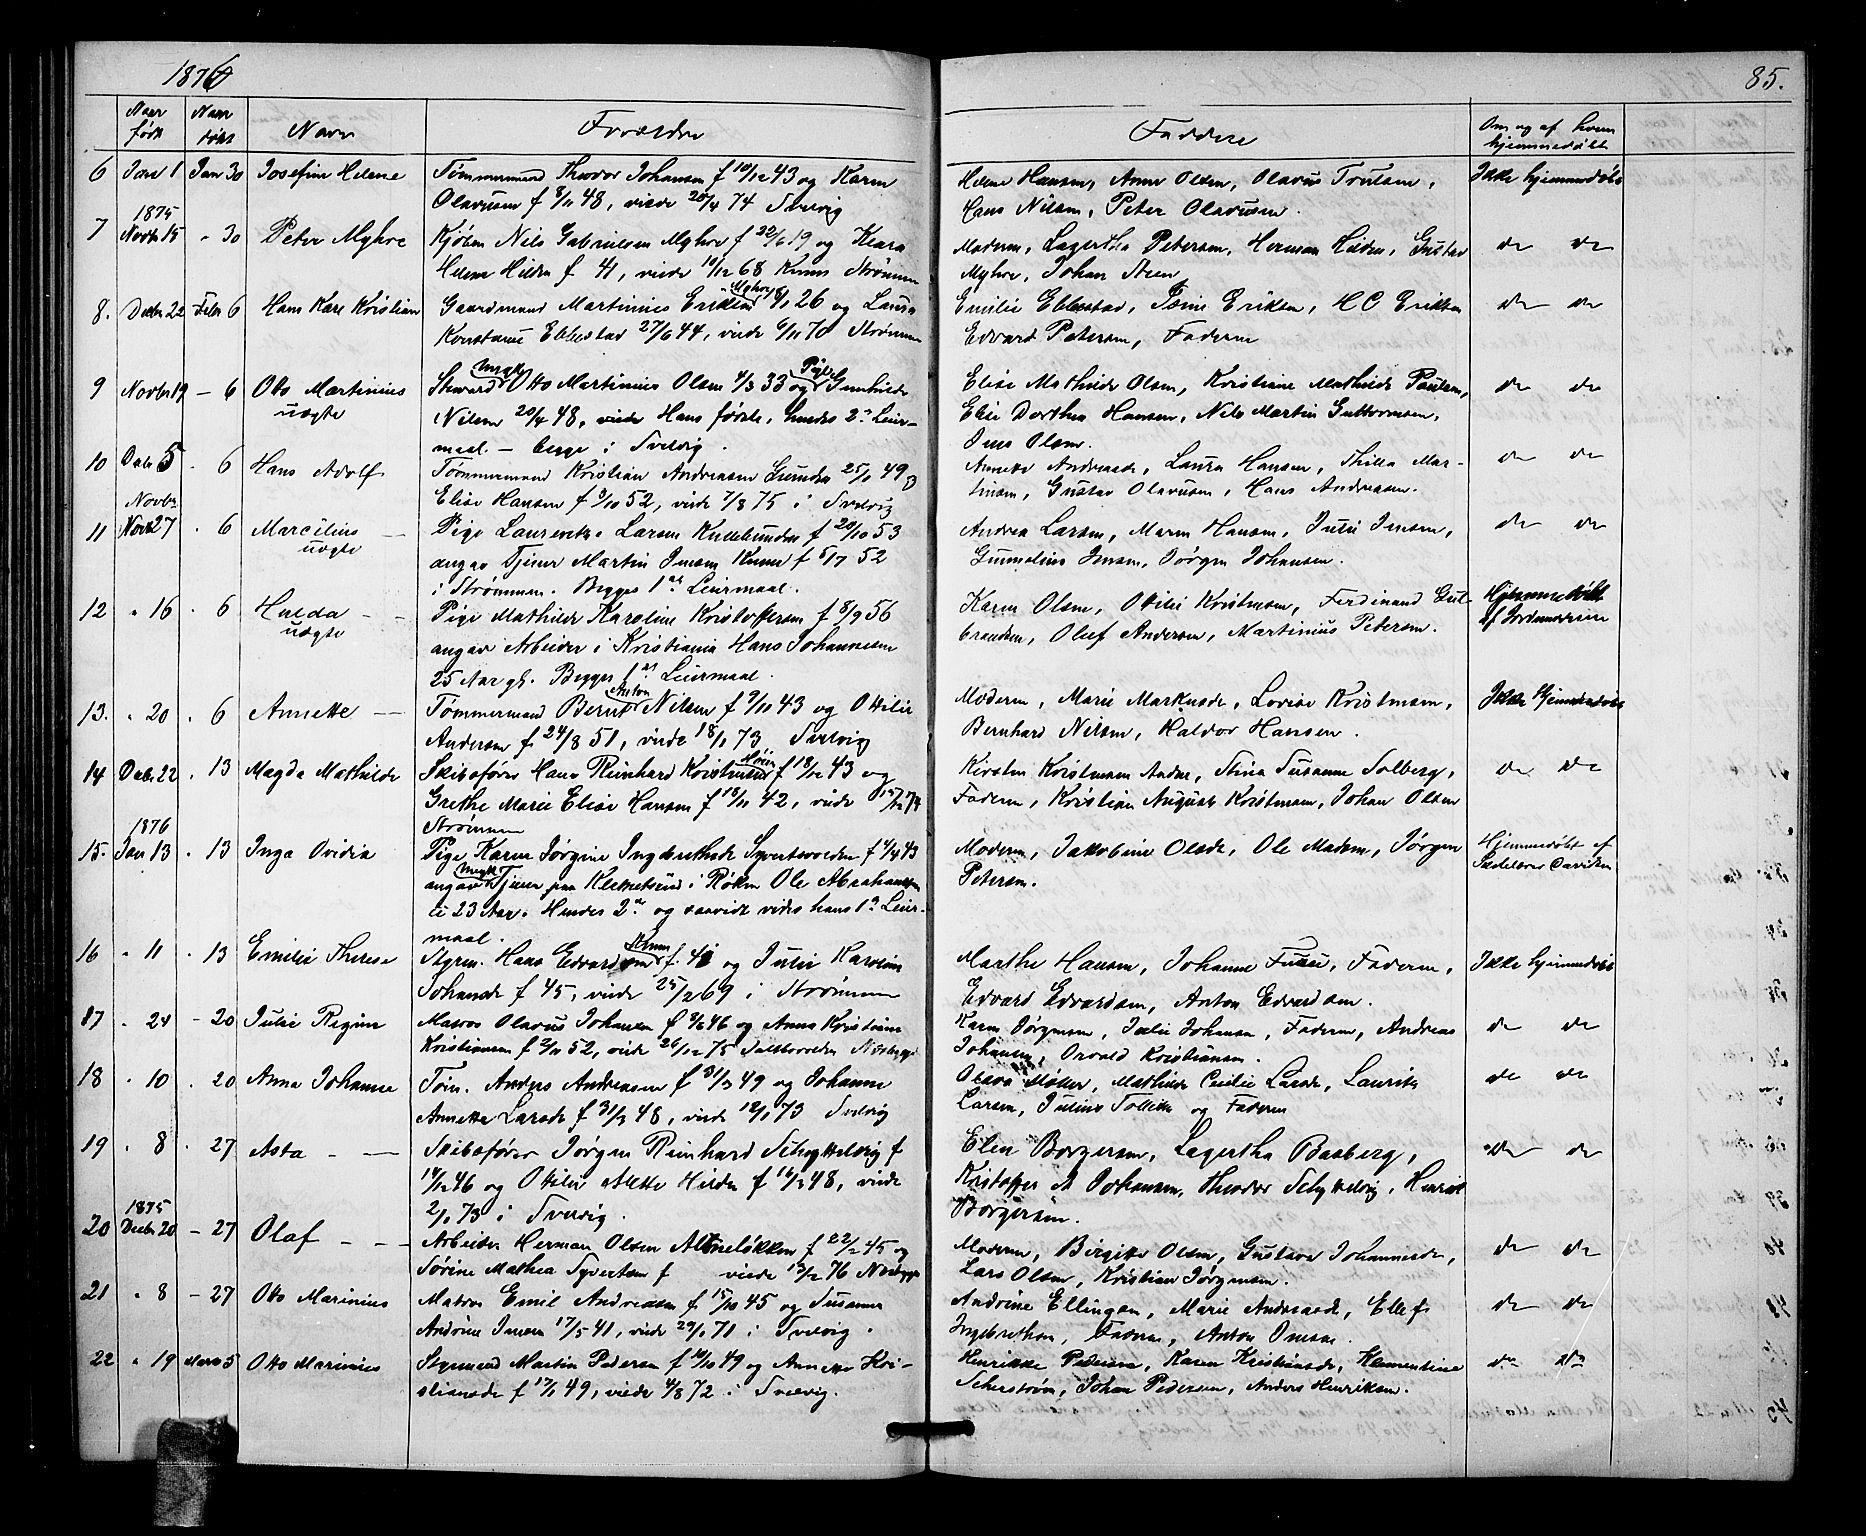 1876
85.
Naar født
Naar døbt
Navn
Forældre
Faddere
Om og af hvem hjemmedøbt
6 Janr 1 Janr 30 Josefine Helene Tømmermand Theodor Johansen f 10/12 43 og Karen Helene Hansen, Anne Olsen, Olavus Trulsen, Ikke hjemmedøbt
Olavusen f 8/11 48, viede 20/4 74 Svelvig Hans Nilsen, Peter Olavusen.
1875
7 Novbr 15 " 30 Peter Myhre Kjøbm Nils Gabrielsen Myhre f 22/6 19 og Klara Moderen, Lagertha Petersen, Herman Hilden, Gustav do do
Helene Hilden f 41, viede 10/12 68 Strømmen Myhre, Johan Steen
8. Decbr 22 Febr 6 Hans Karl Kristian Gaardmand Martinius Eriksen Myhre 26 og Laura Emilie Ebbestad, Eriksen, H C Eriksen do do
Konstance Ebbestad 27/6 44, viede 6/11 70 Strømmen Edvard Petersen, Faderen
9 Novbr 19 - 6 Otto Martinius Ungk Otto Martinius Olsen 4/3 33 og Pige Gunhilde Elise Mathilde Olsen, Kristiane Mathilde Paulsen, do do
uægte Nilsen 20/4 48, Hans første, hendes 2t Leier- Elise Dorthea Hansen, Nils Martin Guttormsen,
maal - begge i Svelvig. Jens Olsen.
10 Decbr 5 " 6 Hans Adolf Tømmermand Kristian Andreasen 25/1 49 og Annette Andreasd, Laura Hansen, Thilla Mar- do do
Elise Hansen f 9/10 52, viede 7/8 75 i Svelvig tinsen, Gustav Olavusen, Hans Andreasen.
Novbr
11 Novbr 27 " 6 Marcelius Pige Laurentze Larsen f 20/10 53 Andrea Larsen, Maren Hansen, Julie Jensen, do do
uægte angav Tjener Martin Jensen f 5/7 52 Gunnelius Jensen, Jørgen Johansen.
i Strømmen. Begges 1ste Leiermaal.
12 " 16 " 6 Hulda Pige Mathilde Karoline Kristoffersen f 8/9 56 Karen Olsen, Otilie Kristensen, Ferdinand Gul- Hjemmedøbt
uægte angav Arbeider i Kristiania Hans Johannesen brandsen, Oluf Andersen, Martinius Petersen. af Jordemoderen
25 Aar gl. Begges 1st Leiermaal.
13. " 20 " 6 Annette Tømmermand Bernt Anton Nilsen f 9/11 43 og Otilie Moderen, Marie Markusd, Lovise Kristensen, Ikke hjemmedøbt
Andersen f 24/8 51, viede 18/1 73 Svelvig Bernhard Nilsen, Haldor Hansen.
14 Decbr 22 " 13 Magda Mathilde Skibsfører Hans Reinhard Kristensen f 18/12 43 og Kirsten Kristensen, Stina Susanne Solberg, do do
Grethe Marie Elise Hansen f 18/11 42, viede 15/12 Faderen, Kristian August Kristensen, Johan Olsen
Strømmen
1876
15. Jan 13 " 13 Inga Ovidia Pige Karen Jørgine Ingebrethsd f 1/4 43 Moderen, Jakobine Olsd, Ole Madsen, Jørgen Hjemmedøbt af
angav Ungk Tjener paa i Røken Ole Abrahamsen Petersen. Davidsen
23 Aar. Hendes 2t og saavidt vides hans 1st Leier-
maal.
16 " 11 " 13 Emilie Therese Styrm. Hans Edvardsen f. 41 og Julie Karoline Marthe Hansen, Johanne, Faderen, Ikke hjemmedøbt
Johansd f 45, viede 25/2 69 i Strømmen Edvard Edvardsen, Anton Edvardsen.
17 " 24 - 20 Julie Regine Matros Olavus Johansen f 46 og Anna Kristine Karen Jørgensen, Julie Johansen, Faderen, Andreas do do
Kristiansen f 2/11 52, viede 26/12 75 Johansen, Osvald Kristiansen.
18 " 10 " 20 Anna Johanne Tøm. Anders Andreasen f 31/3 49 og Johanne Olava Møller, Mathilde Cecilie Larsd, Lauritz do do
Annette Larsd f 31/3 48, viede 12/1 73 Svelvig Larsen, Julius og Faderen
19 " 8 " 27 Asta Skibsfører Jørgen Reinhard f Elen Borgersen, Lagertha Basberg, do do
14/12 46 og Otilie Alette Hilden f 16/3 48, viede Kristoffer A Johansen, Theodor, Henrik
2/1 73 i Svelvig. Borgersen.
1875
20 Decbr 20 - 27 Olaf Arbeider Herman Olsen f 22/2 45 og Moderen, Birgitte Olsen, Gustava Johannesd, do do
Sørine Mathea Syvertsen f viede 13/2 76 Lars Olsen, Kristian Jørgensen.
21 " 8 - 27 Otto Marinius Matros Emil Andreasen f 15/10 45 og Susanne Andrine Ellingsen, Marie Andreasd, Ellef do do
Andrine Jensen 17/5 41, viede 29/1 71 i Svelvig. Ingebrethsen, Faderen, Anton Jensen.
22 " 19 Marts 5 Otto Marinius Styrmand Martin Pedersen f 10/10 49 og Annette Kri- Henrikke Pedersen, Karen Kristiansd, Klementine do do
stiansd f 17/1 49, viede 4/8 72 i Svelvig. Johan Pedersen, Anders Henriksen.